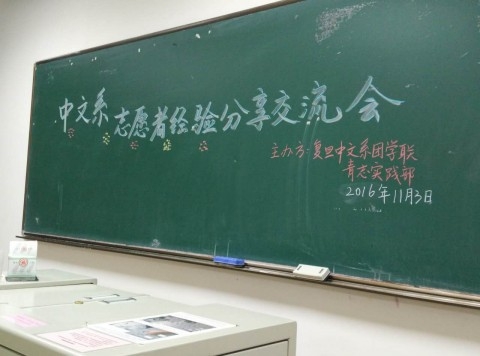 中文系志愿者经验分享交流会
主办方:复旦中文系团学联
青志实践部
2016年11月3日